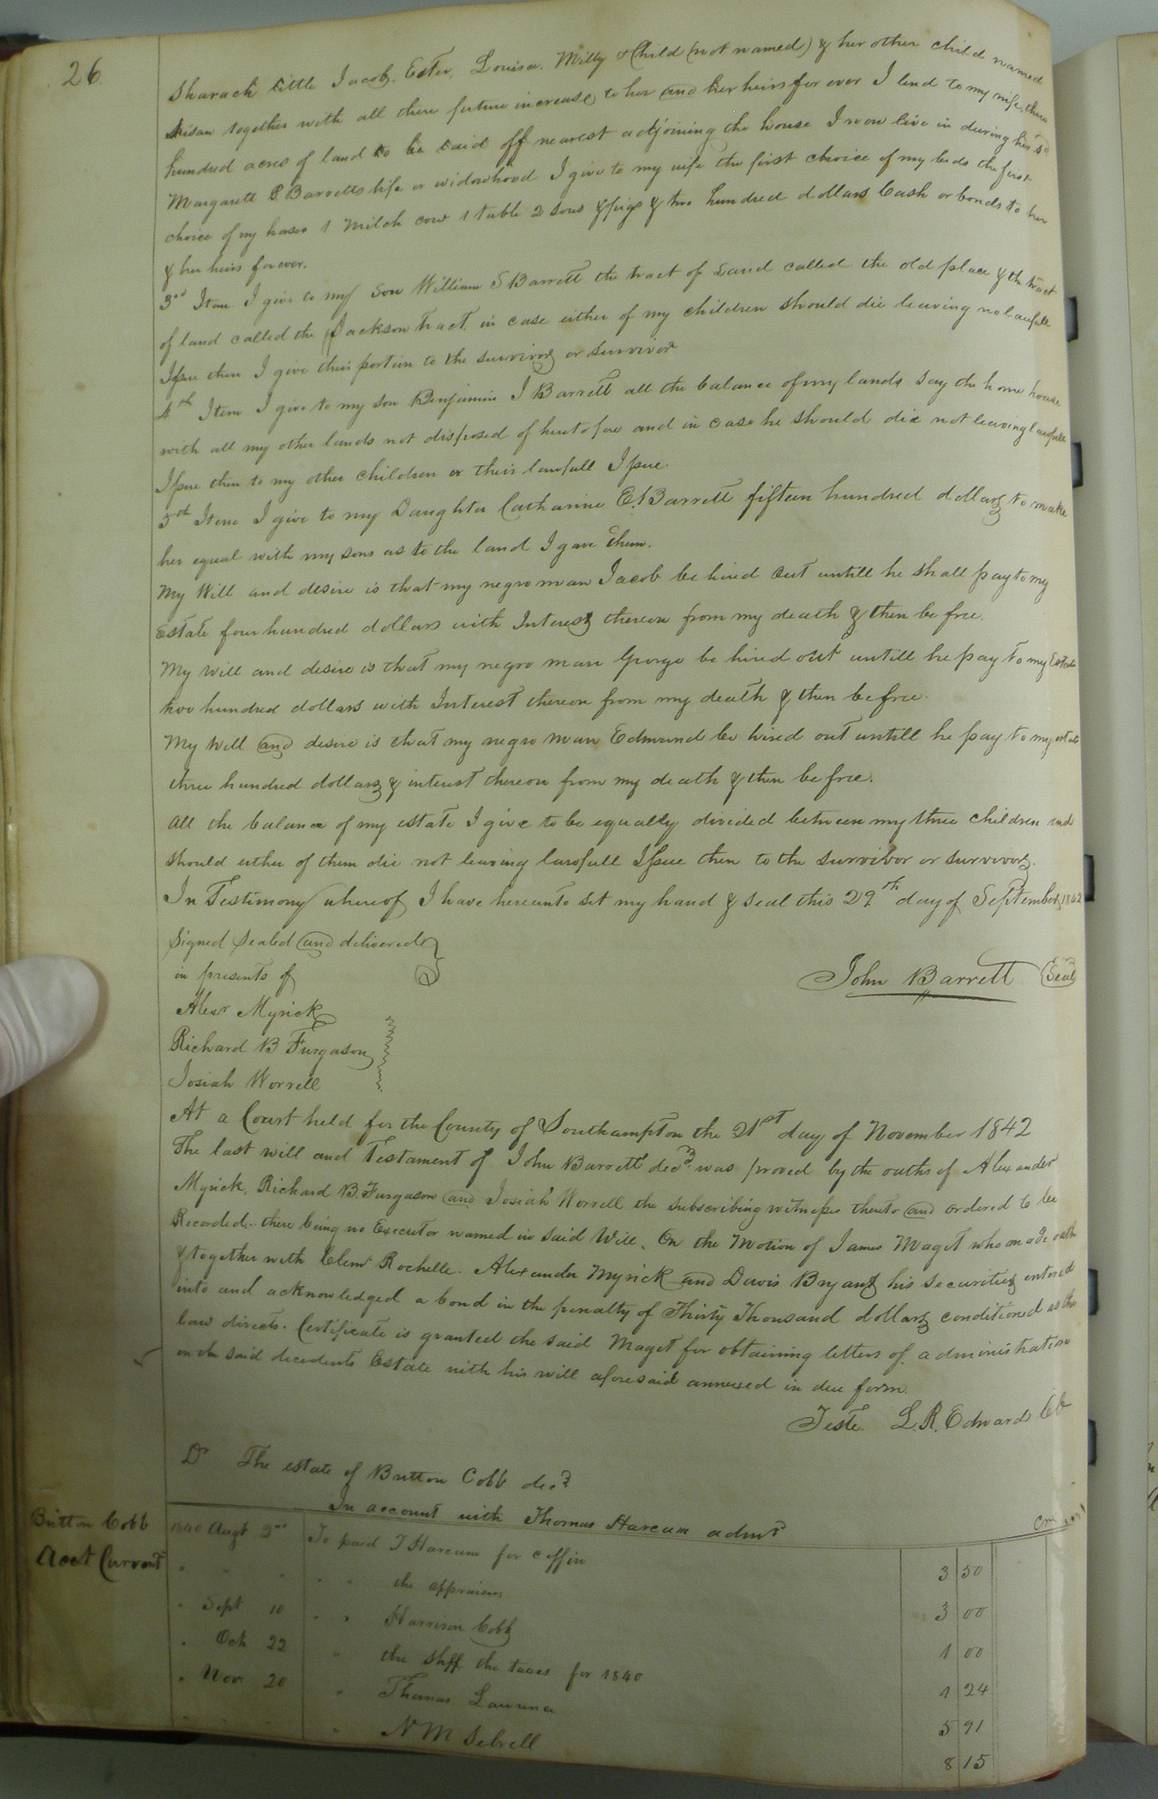 26
Sharack little Jacob. Ester, Louisa. Milly & Child (not named) & her other child named
together with all there future increase to her and her heirs for ever I lend to my wife three
hundred acres of land to be laid off nearest adjoining the house I now live in during her sd
Margarett P. Barretts life or widowhood I give to my wife the first choice of my beds the first
choice of my horses 1 Milch cow 1 table 2 sows & pigs & two hundred dollars Cash or bonds to her
& her heirs forever.
3rd Item I give to my son William S Barrett the tract of Land called the old place & the tract
of land called the Jackson tract in case either of my children should die leaving no lawfull
Issue then I give their portion to the survivors or survivor
4th Item I give to my son Benjamin J Barrett all the balance of my lands say the home house
with all my other lands not disposed of heretofore and in case he should die not leaving lawfull
Issue then to my other children or their lawfull Issue.
5th Item I give to my Daughter Catharine E. Barrett fifteen hundred dollars to make
her equal with my sons as to the land I gave them.
My Will and desire is that my negro man Jacob be hired out untill he shall pay to my
Estate four hundred dollars with Interest thereon from my death & then be free.
My will and desire is that my negro man George be hired out untill he pay to my Estate
two hundred dollars with Interest thereon from my death & then be free.
My Will and desire is that my negro man Edmund be hired out untill he pay to my estate
three hundred dollars & interest thereon from my death & then be free.
all the balance of my estate I give to be equally divided between my three children and
should either of them die not leaving lawfull Issue then to the survivor or survivors.
In Testimony whereof I have hereunto set my hand & seal this 29th day of September 1842
Signed Sealed and delivered
in presents of
John Barrett (Seal)
Alexr Myrick
Richard B Furgason
Josiah Worrell
At a Court held for the County of Southampton the 21st day of November 1842
The last will and Testament of John Barrett decd was proved by the oaths of Alexander
Myrick, Richard B. Furgason and Josiah Worrell the subscribing witnesses thereto and ordered to be
Recorded. there being no Executor named in said Will. On the Motion of James Maget who made oath
& together with Clemt Rochelle. Alexander Myrick and Davis Bryant his securities entered
into and acknowledged a bond in the penalty of Thirty Thousand dollars conditioned as the
law directs. Certificate is granted the said Maget for obtaining letters of administration
on the said decedents Estate with his will aforesaid annexed in due form.
Teste. L. R. Edwards Clk
Dr The estate of Britton Cobb decd
In account with Thomas Harcum admr
Britton Cobb
Acct Current
1840 Augt 3rd To paid T Harcum for coffin 3 50
" " " " " the appraisers 3 00
" Sept 10 " " Harrison Cobb 1 00
" Oct 22 " the Shff the taxes for 1840 1 24
" Nov 20 " Thomas Lawrence 5 91
" N M Sebrell 8 15